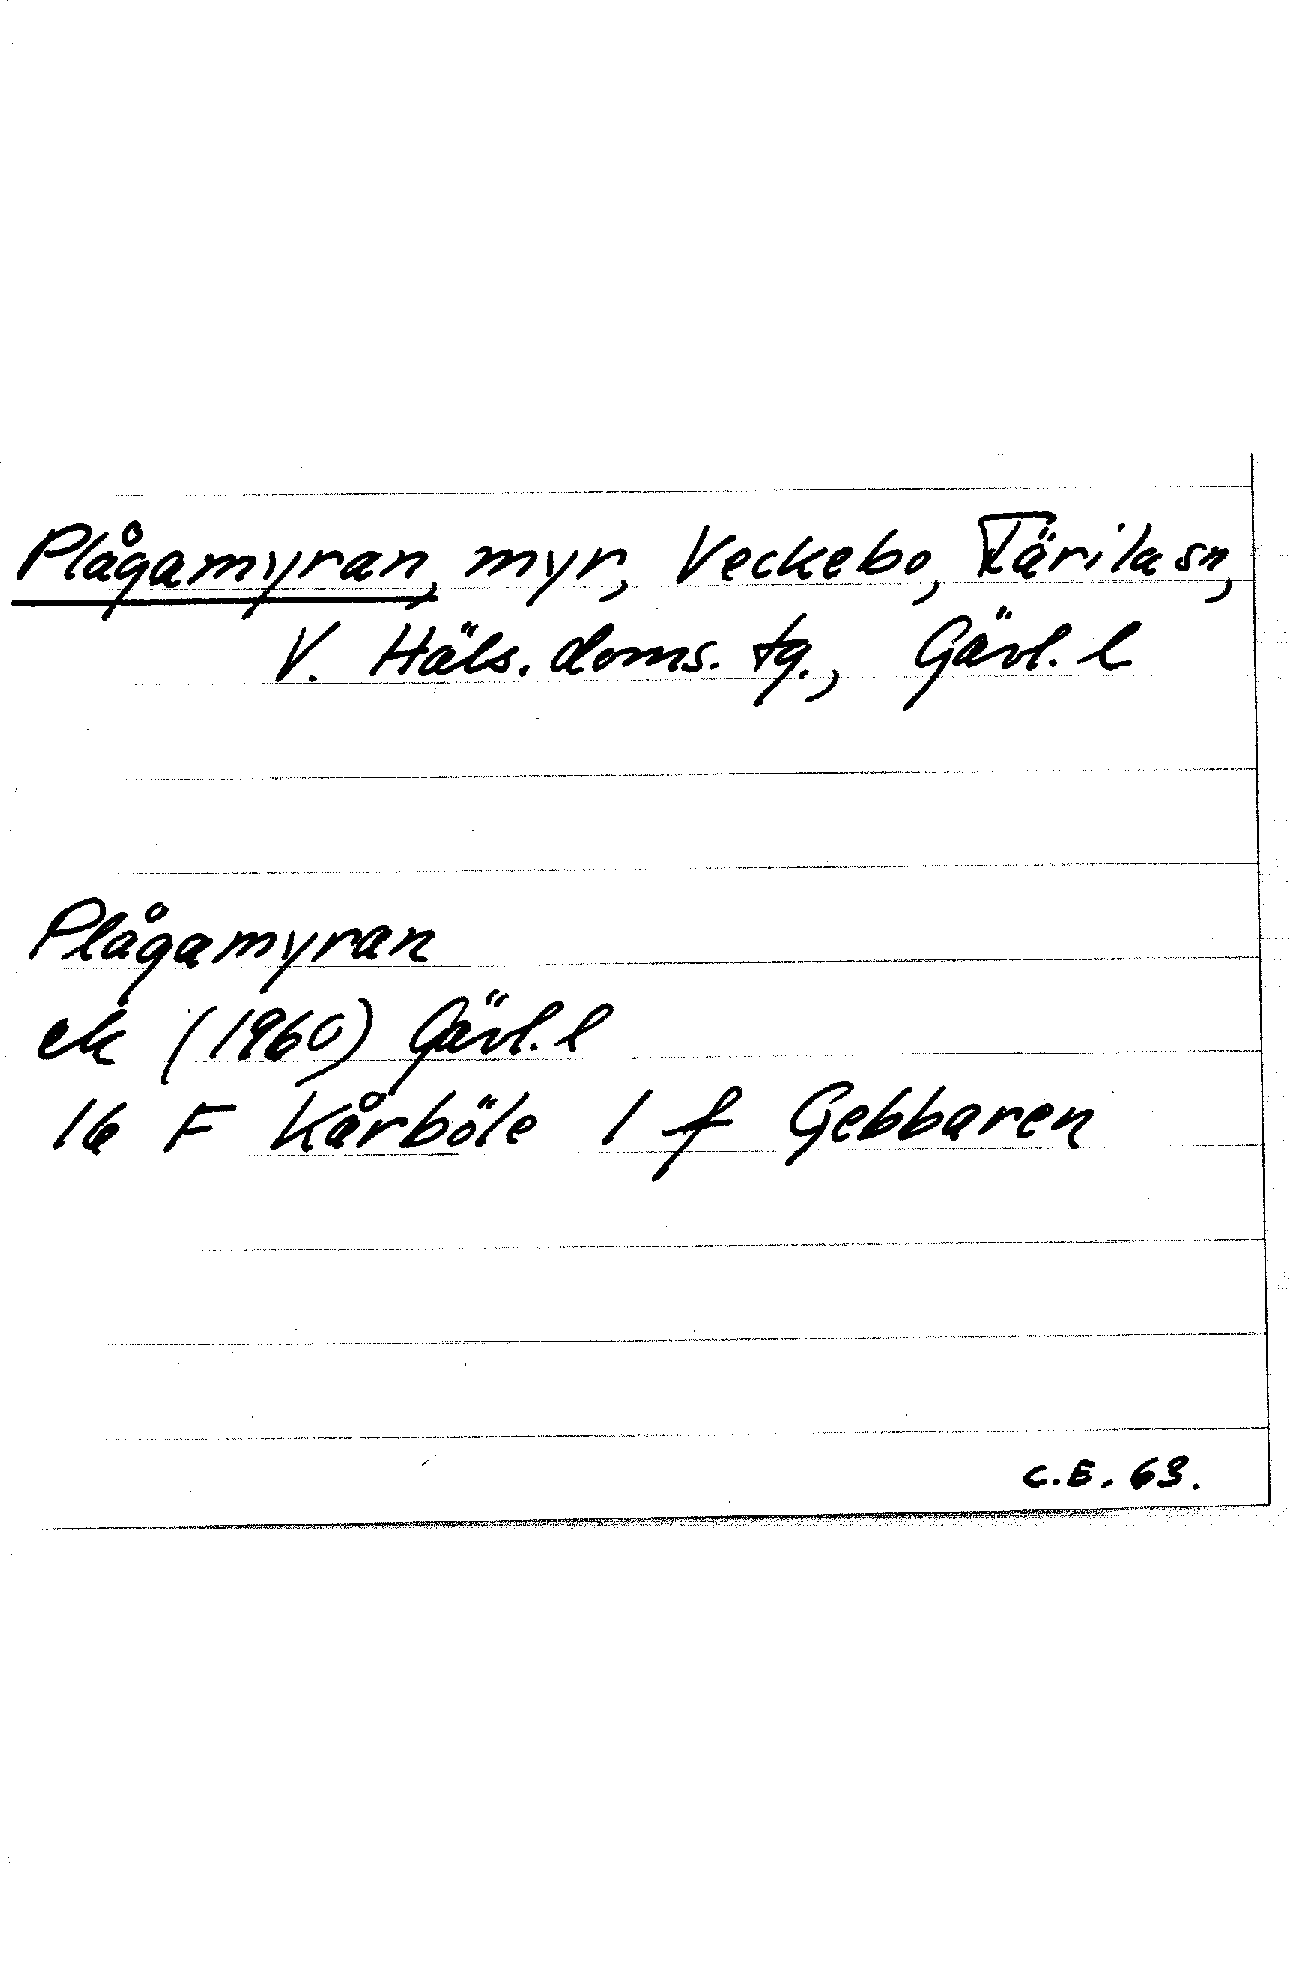 Plågamyran, myr, Veckebo, Färila sn,
V. Häls. doms. tg., Gävl. l
Plågamyran
ek (1960) Gävl. l
16 F Kårböle 1 f Gebbaren
C.E. 63.